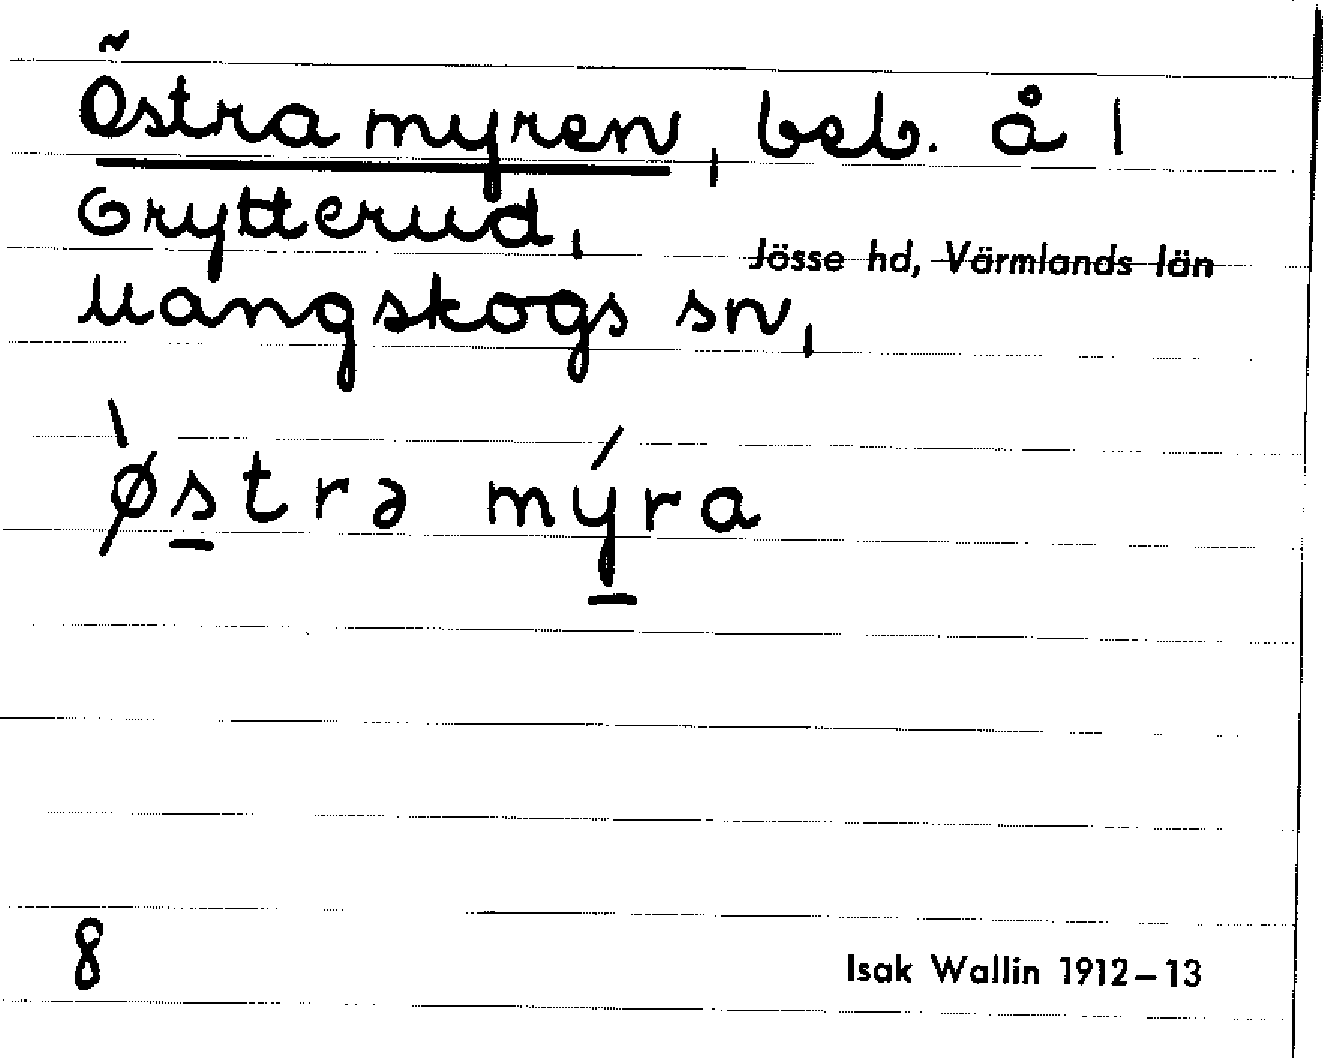 Östra myren, beb. å 1
Grytterud,
Jösse hd, Värmlands län
Mangskogs sn,
`østrə mýra
8
Isak Wallin 1912–13